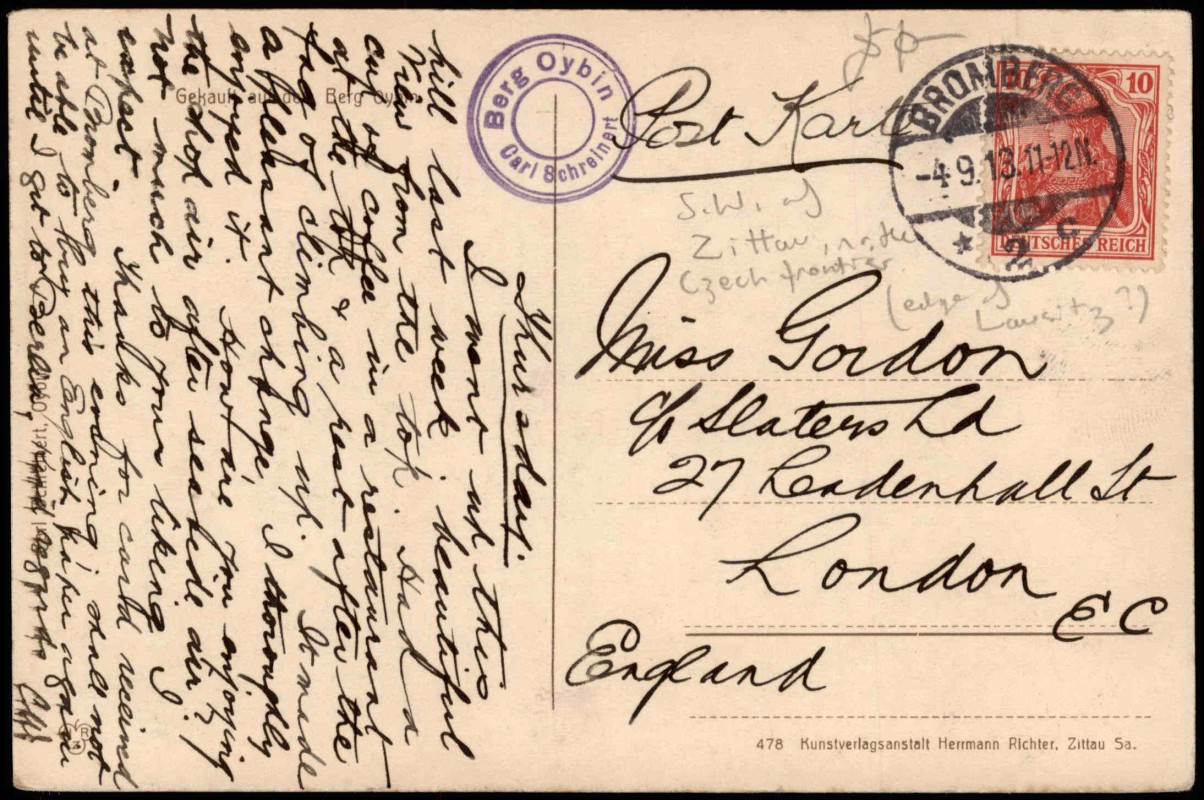 Thursday.
I went up this
hill last week. beautiful
view from the top. Had a
cup of coffee in a restaurant
at the top & a rest after the
fag of climbing up. It made
a pleasant change. I thoroughly
enjoyed it. How are you enjoying
the shop air after seaside air?
Not much to your liking I
expect. Thanks for card received
at Bromberg this evening. Shall not
be able to buy an English paper again
until I get to Berlin,
Gekauft auf dem Berg Oybin
Berg Oybin
Carl Schreinert
Post Karte
BROMBERG
-4.9.13.11-12N.
* 2 c
10
DEUTSCHES REICH
S.W. of
Zittau, nr. the
Czech frontier
(edge of
Lausitz?)
Miss Gordon
c/o Slaters Ld
27 Leadenhall St
London
EC
England
478 Kunstverlagsanstalt Herrmann Richter, Zittau Sa.